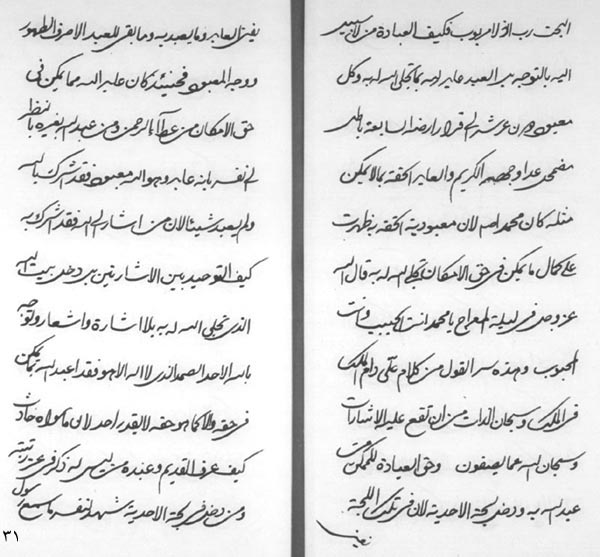 البحت رب اذ لا مربوب فكيف العبادة من لا سبيل
اليه بالتوجه بل العبد عابد لله بما تجلى الله له به وكل
معبود من دون عرشه الى قرار ارضه السابعة باطل
مضمحل عدا وجهه الكريم والعابد الحقة بما لا يمكن
مثله كان محمد لان معبودية الحقة به ظهرت
على كمال ما يمكن في حق الامكان تجلى الله له به قال الله
عز وجل في ليلة المعراج يا محمد انت الحبيب وانت
المحبوب وهذه سر القول من كلام علي دام الملك
في الملك وسبحان الذات من ان تقع عليه الاشارات
وسبحان الله عما يصفون وحق العبادة للممكن من
عبد الله به ودخل لجة الاحدية لان في تلك اللجة
يفنى
يفنى العابد وما يعبد به وما بقي للعبد الا صرف الظهور
ووجه المعبود فحينئذ كان عابد الله مما يمكن في
حق الامكان من عطاء الرحمن ومن عبد الله بغيره بالنظر
الى نفسه بانه عابد وهو الله معبود فقد اشرك بالله
ولم يعبد شيئا لان من اشار الى الله فقد اشرك به
كيف التوحيد بين الاشارتين بل دخل بيت الله
الذي تجلى الله له به بلا اشارة واشعار وتوجه
بالله الاحد الصمد الذي لا اله الا هو فقد اعبد الله بما يمكن
في حقه والا كما هو حقه لا يقدر احد لان ما سواه حادث
كيف عرف القديم وعبده من ليس له ذكر في عز رتبته
ومن دخل في لجة الاحدية يشهد لنفسه ما سمع كميل
٣١